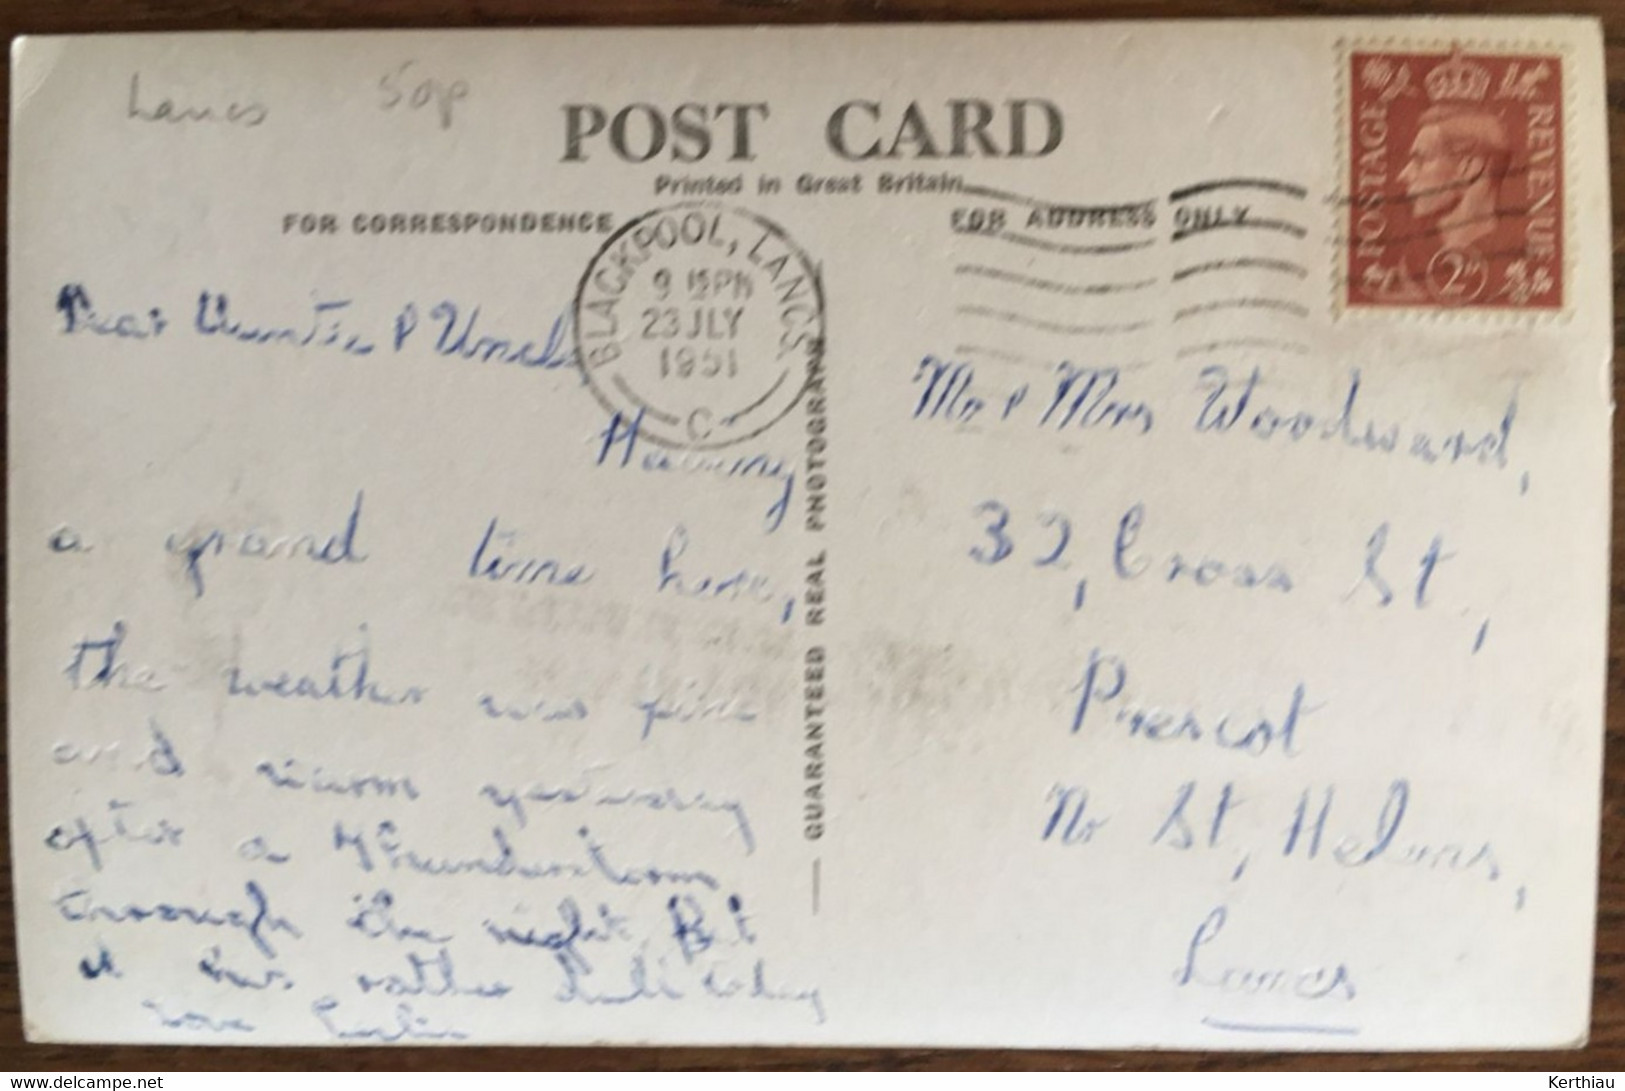 Lancs 50p
POST CARD
Printed in Great Britain
FOR CORRESPONDENCE
FOR ADDRESS ONLY
BLACKPOOL, LANCS.
9 15 PM
23 JLY
1951
C
POSTAGE REVENUE
2D
GUARANTEED REAL PHOTOGRAPH
Dear Auntie & Uncle,
Having
a grand time here,
the weather was fine
and warm yesterday
after a Thunderstorm
through the night, But
it is rather dull today
Love
Mr & Mrs Woodward,
32, Cross St,
Prescot
Nr St, Helens,
Lancs
Kerthiau